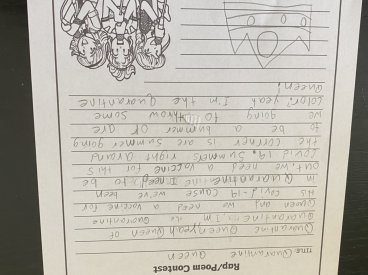 Rap/Poem Contest
TITLE: Quarantine Queen
Quarantine Queen, yeah Queen of
Quarantine I'm the Quarantine
Queen and we need a vaccine for
this Covid-19 cause we've been
in Quarantine I need to be
out, we need a vaccine for this
Covid 19. Summers right around
the corner is are summer going
to be a bummer or are
we going to throw some
color? yeah I'm the Quarantine
Queen!